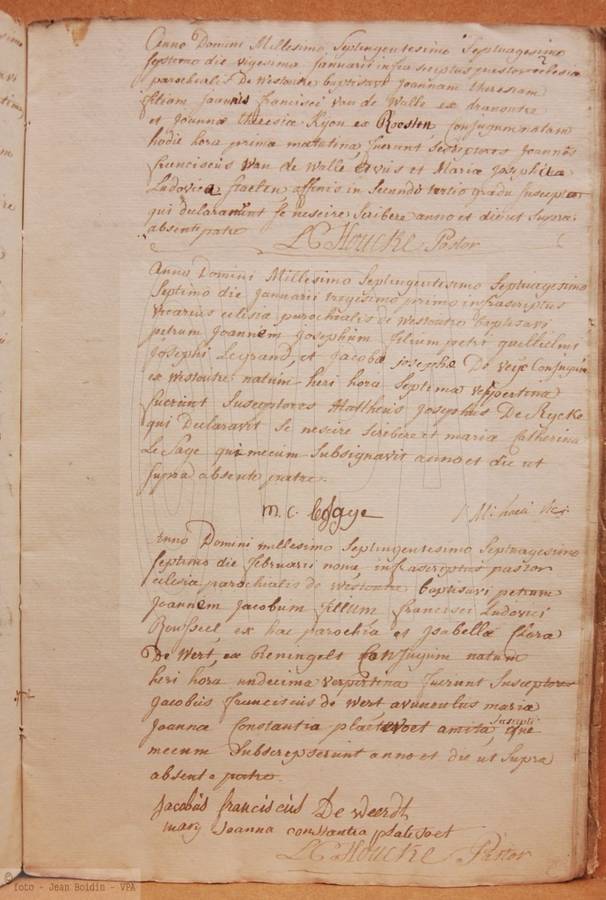 Anno Domini Millesimo Septingentesimo Septuagesimo
septimo die vigesima Januarii infrascriptus pastor eclesia
parochialis De Westoutre baptisavi Joannam theresiam
filiam Joannis francisci van de Walle ex dranoutre
et Joannæ theresia Ryon ex Reesten Conjugum natam
hodie hora prima matutina, fuerunt Susceptores Joannes
franciscus Van de Walle avus et Maria Josephina
Ludovica staelen affinis in Secundo tertio gradu susceptor
qui declaravunt se nescire scribere anno et die ut Supra
absente patre
LC Houcke Pastor
Anno Domini Millesimo Septingentesimo Septuagesimo
Septimo die Januarii trigesimo primo infrascriptus
vicarius eclesia parochialis de Westoutre baptisavi
petrum Joannem Josephum filium petri guillielmi
Josephi Legrand, et Jacoba Josepha De Conjugum
ex Westoutre natum heri hora Septima vespertina
fuerunt Susceptores Mattheus Josephus De Rycke
qui declaravit se nescire scribere et maria Catherina
Le Sage qui mecum Subsignavit anno et die ut
supra absente patre.
m. c. lesage
Anno Domini millesimo Septingentesimo Septuagesimo
septimo die februarii nona infrascriptus pastor
eclesia parochialis de Westoutre baptisavi petrum
Joannem Jacobum filium francisci Ludovici
Roussel, ex hac parochia et Isabella Clara
De Wert, ex Reningelt Conjugum natum
heri hora undecima vespertina fuerunt Susceptores
Jacobus franciscus de Wert avunculus maria
Joanna Constantia plaetevoet amita, que
mecum Subscrepserunt anno et die ut Supra
absente patre.
Jacobus franciscus De Weerdt
mary Joanna constantia platevoet
LC Houcke Pastor
© foto - Jean Boidin - VPA